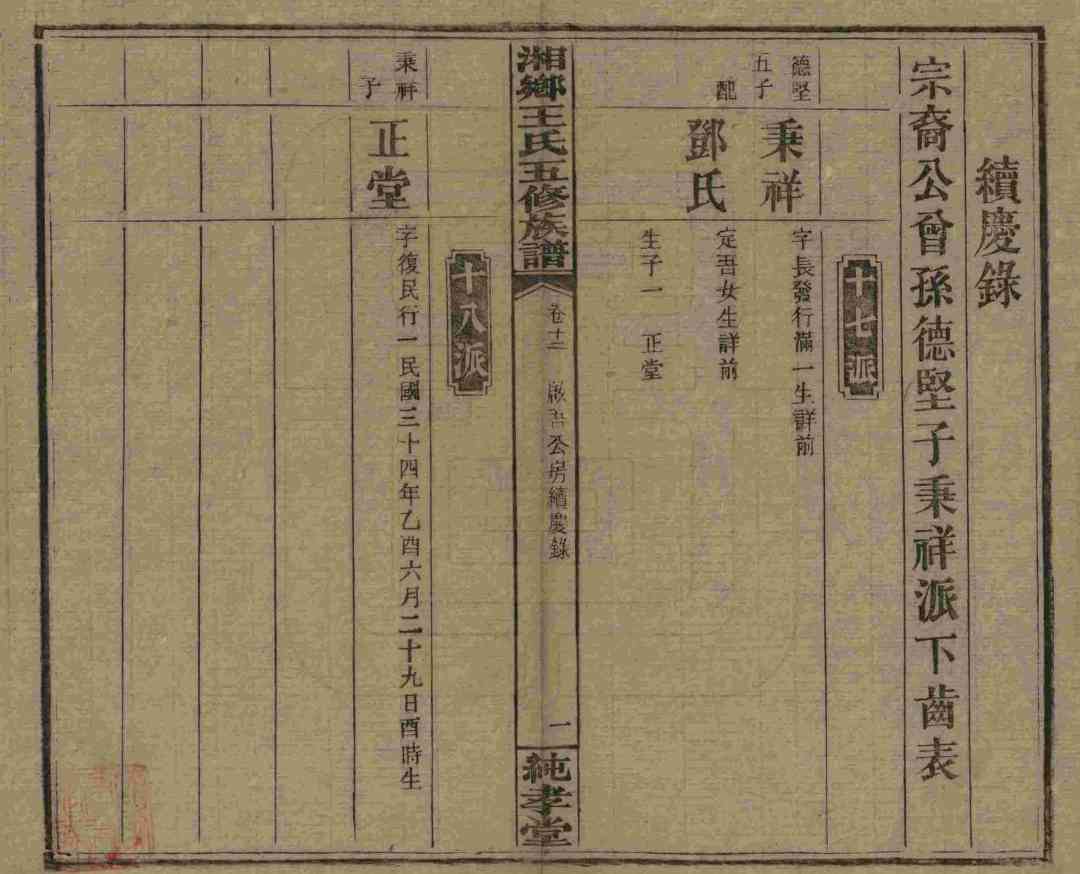 續慶錄
宗裔公曾孫德堅子秉祥派下齒表
十七派
德堅
五子
秉祥
字長發行滿一生詳前
配
鄧氏
定吾女生詳前
生子一 正堂
湘鄉王氏五修族譜
卷十二 啟吾公房續慶錄
一
純孝堂
十八派
秉祥
子
正堂
字復民行一民國三十四年乙酉六月二十九日酉時生